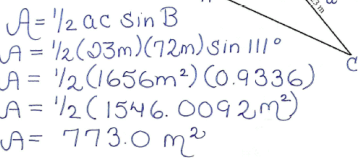 A = 1/2 ac sin B
A = 1/2 (23m)(72m) sin 111°
A = 1/2 (1656m²)(0.9336)
A = 1/2 (1546.0092m²)
A = 773.0 m²
C